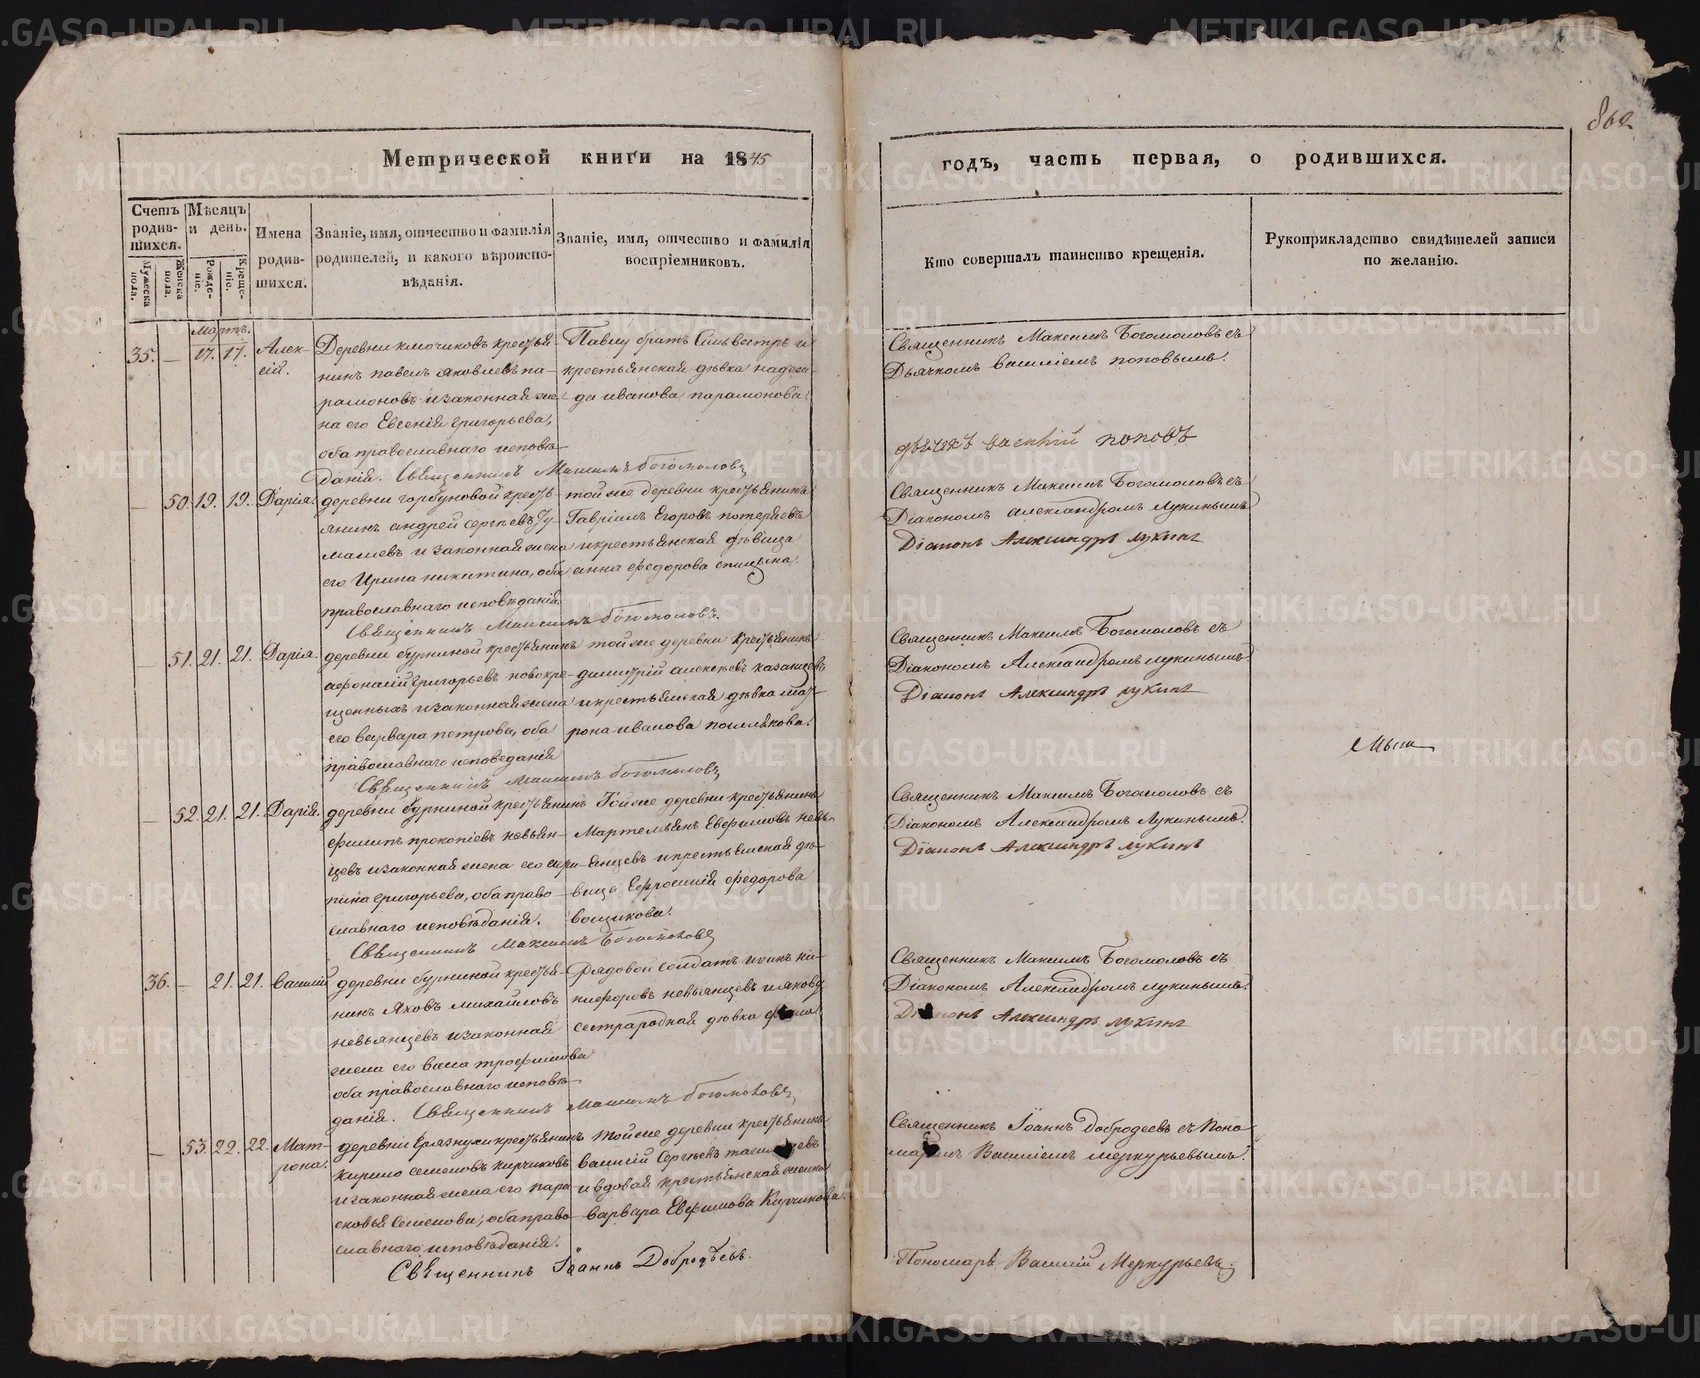 862
Метрической книги на 1845
годъ, часть первая, о родившихся.
Счетъ родившихся.
Мужеска пола.
Женска пола.
Мѣсяцъ и день.
Рожденіе.
Крещеніе.
Имена родившихся.
Званіе, имя, отчество и фамилія
родителей, и какого вѣроиспо-
вѣданія.
Званіе, имя, отчество и фамилія
воспріемниковъ.
Кто совершалъ таинство крещенія.
Рукоприкладство свидѣтелей записи
по желанію.
Мартъ.
35. — 17. 17. Алек-
сій.
Деревни Ключиковъ крестья-
нинъ Павелъ Яковлевъ Па-
рамоновъ и законная же-
на его Евгенія Григорьева,
оба православнаго исповѣ-
данія. Священникъ Максимъ Богомоловъ
Павлу братъ Сильвестръ и
крестьянская дѣвка Надеж-
да Иванова Парамонова.
Священникъ Максимъ Богомоловъ съ
Дьячкомъ Василіемъ Поповымъ.
Дьячекъ Василій Поповъ
— 50. 19. 19. Дарія.
деревни Горбуновой кресть-
янинъ Андрей Сергѣевъ
и законная жена
его Ирина Никитина, оба
православнаго исповѣданія.
Священникъ Максимъ Богомоловъ.
той же деревни крестьянинъ
Гавріилъ Егоровъ Потеряевъ
и крестьянская дѣвица
Анна Федорова Спицына.
Священникъ Максимъ Богомоловъ съ
Діакономъ Александромъ Лукинымъ
Діаконъ Александръ Лукинъ
— 51. 21. 21. Дарія.
деревни Бурниной крестьянинъ
Афонасій Григорьевъ Новокре-
щенныхъ и законная жена
его Варвара Петрова, оба
православнаго исповеданія
Священникъ Максимъ Богомоловъ
той же деревни крестьянинъ
Димитрій Алексѣевъ Казанцевъ
и крестьянская дѣвка Мат-
рона Иванова Полякова.
Священникъ Максимъ Богомоловъ съ
Діакономъ Александромъ Лукинымъ.
Діаконъ Александръ Лукинъ
— 52. 21. 21. Дарія.
деревни Бурниной крестьянинъ
Филипъ Прокопіевъ Невьян-
цевъ и законная жена его Агри-
пина Григорьева, оба право-
славнаго исповѣданія.
Священникъ Максимъ Богомоловъ
Той же деревни крестьянинъ
Мартемьянъ Евфимовъ Невь-
янцевъ и крестьянская дѣ-
вица Ефросинія Федорова
Вощикова.
Священникъ Максимъ Богомоловъ съ
Діакономъ Александромъ Лукинымъ.
Діаконъ Александръ Лукинъ
36. — 21. 21. Василій
деревни Бурниной крестья-
нинъ Яковъ Михайловъ
Невьянцевъ и законная
жена его Васса Трофимова
оба православнаго исповѣ-
данія. Священникъ Максимъ Богомоловъ
Рядовой солдатъ Ни-
кифоровъ Невьянцевъ и Якову
сестра родная дѣвка
Священникъ Максимъ Богомоловъ съ
Діакономъ Александромъ Лукинымъ.
Діаконъ Александръ Лукинъ
— 53. 22. 22. Мат-
рона.
деревни Грязнухи крестьянинъ
Кирило Семеновъ Кирчиковъ
и законная жена его Пара-
сковья Семенова, оба право-
славнаго исповѣданія.
Священникъ Іоаннъ Добродѣевъ.
той же деревни крестьянинъ
Василій Сергѣевъ
и вдовая крестьянская женка
Варвара Евфимова Кирчикова.
Священникъ Іоаннъ Добродеевъ съ Поно-
маремъ Василіемъ Меркурьевымъ.
Пономарь Василій Меркурьевъ